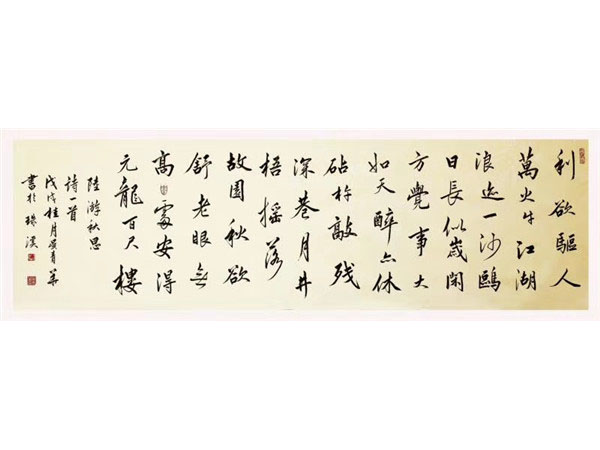 利欲驅人
萬火牛江湖
浪迹一沙鷗
日長似歲閑
方覺事大
如天醉亦休
砧杵敲残
深巷月井
梧摇落
故園秋欲
舒老眼無
高處安得
元龍百尺樓
陸游秋思
詩一首
戊戌桂月
書於珠溪